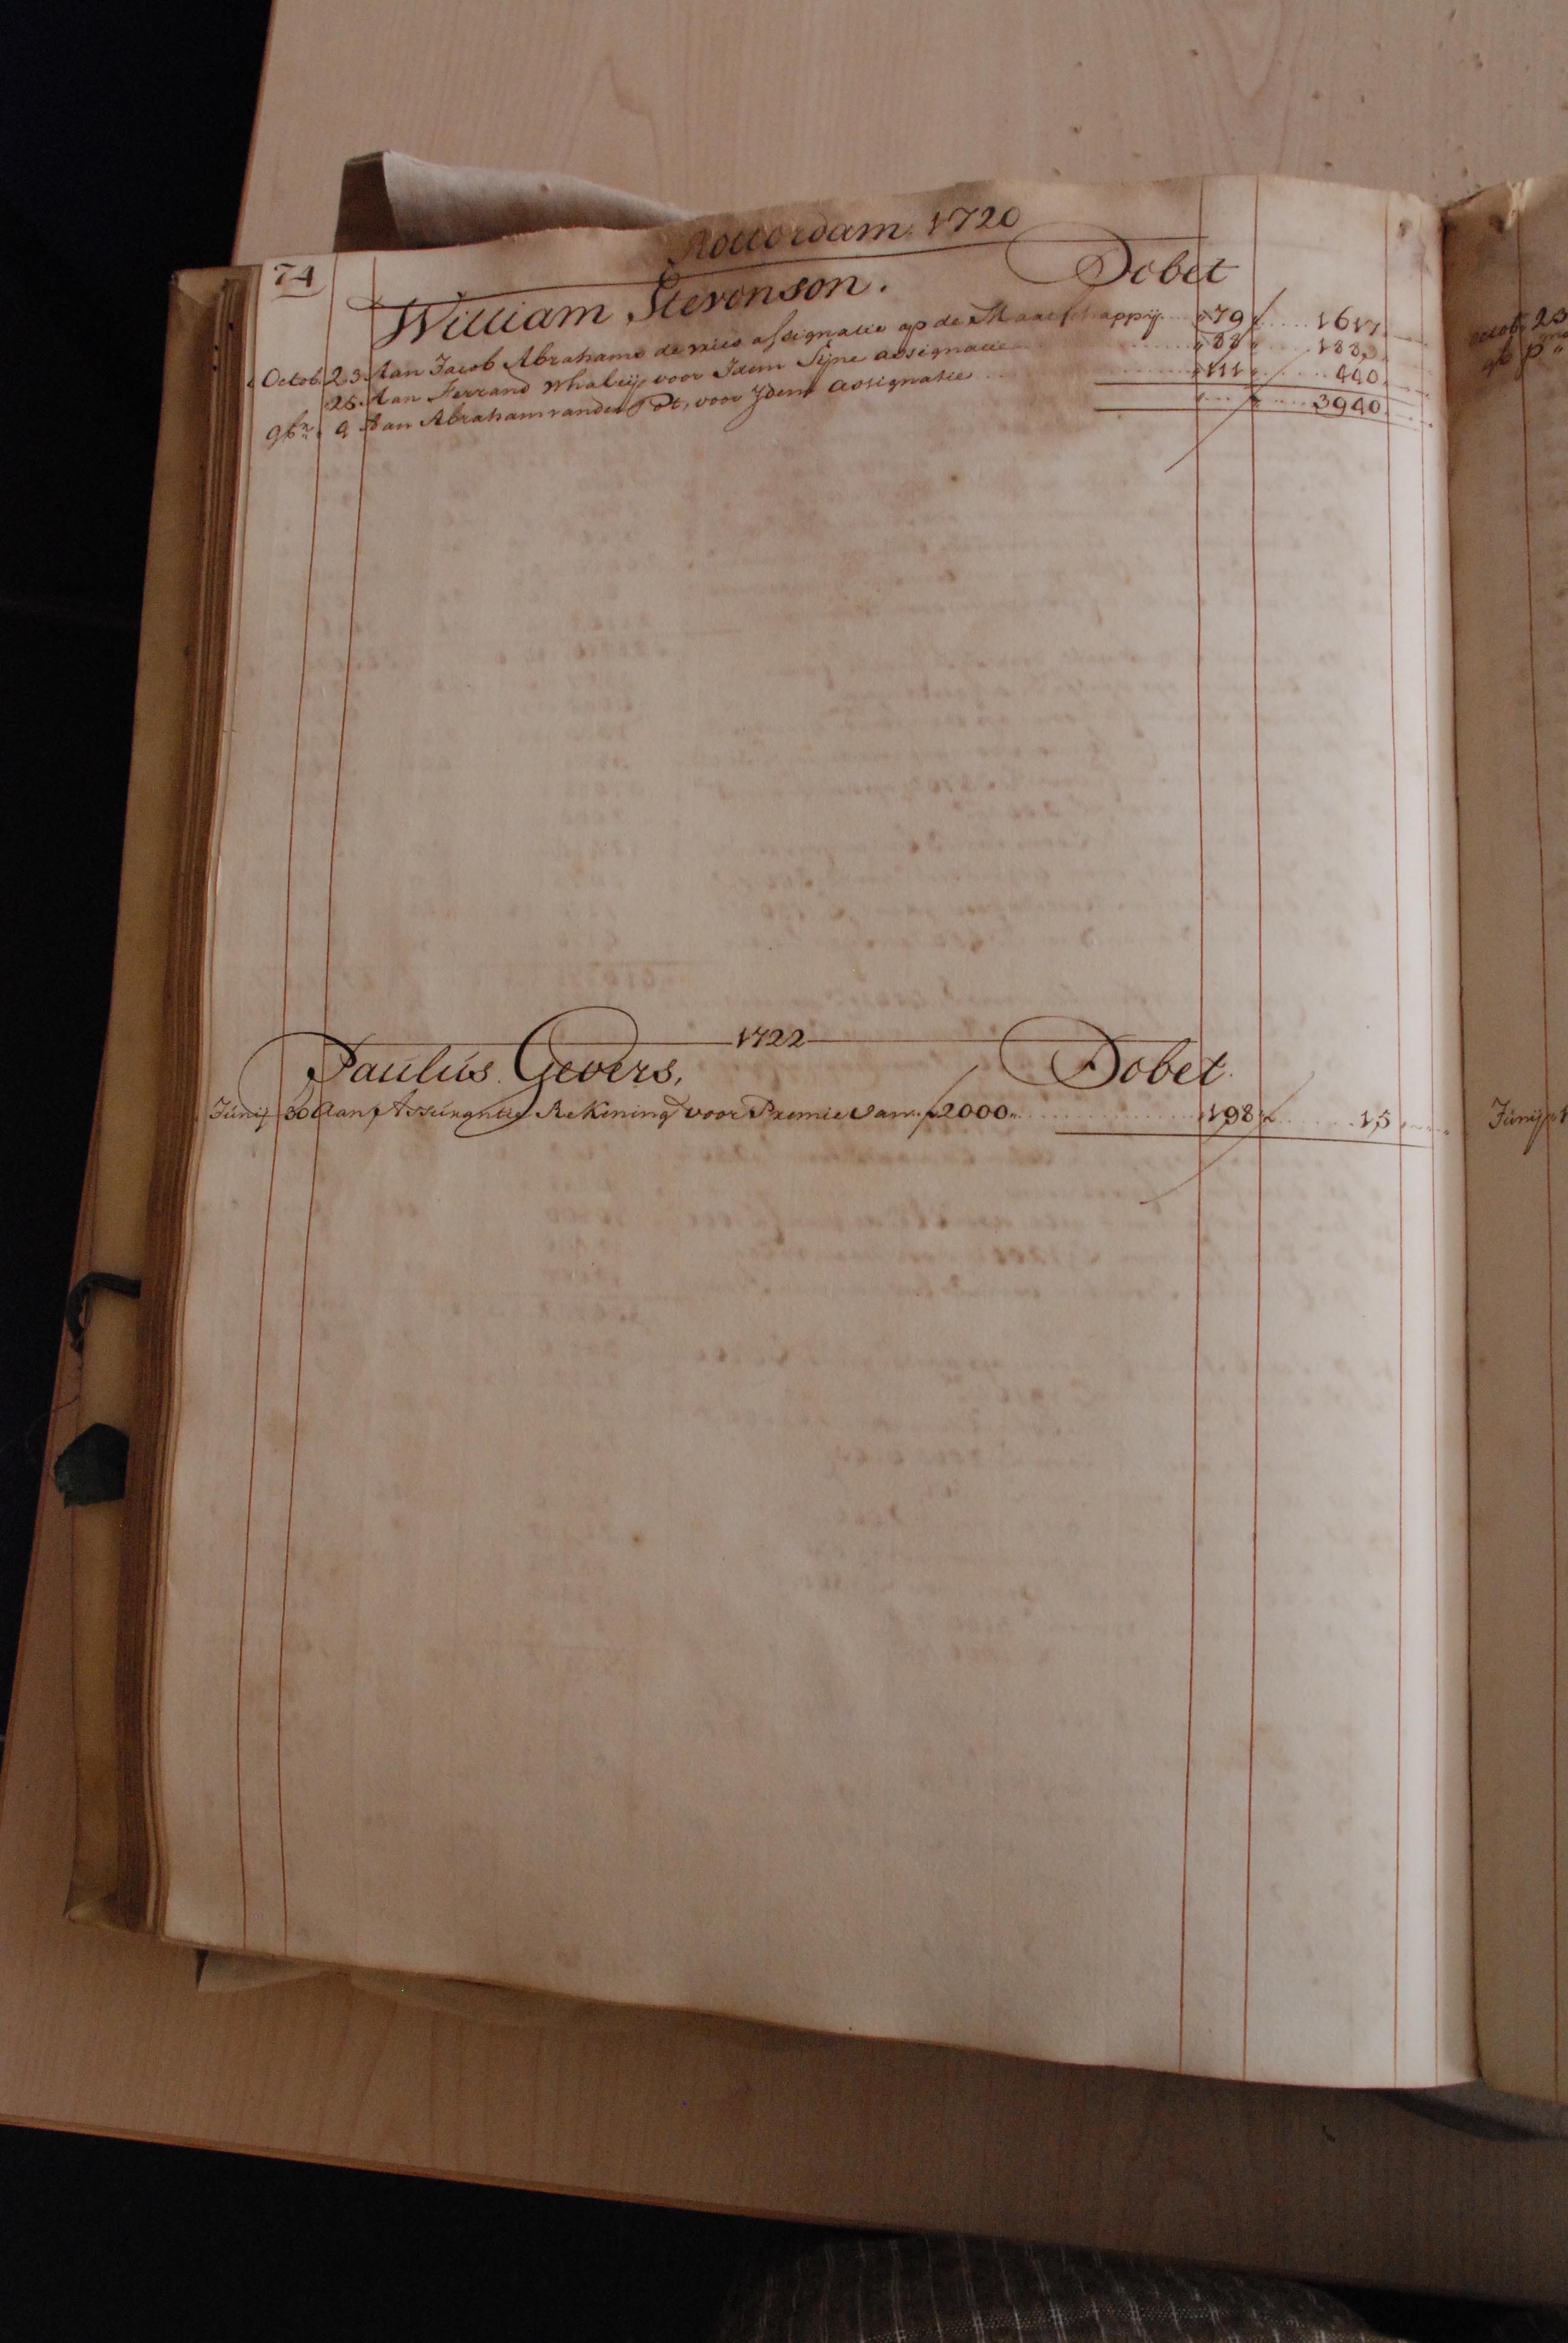 Rotterdam. 1720
74
William Stevenson. Debet
Octob. 23. Aan Jacob Abrahams de vries assignatie op de Maatschappij 79 f 1617
25. Aan Ferrand Whaleij voor Idem Sijne assignatie 88 188
9br. 4 Aan Abraham vander Pot, voor Idem assignatie 111
3940
1722
Paulús Gevers, Debet
Júnij 30 Aan Assúrantie Rekening voor Premie van f 2000 198 f 15
Octob. 23
Júnij